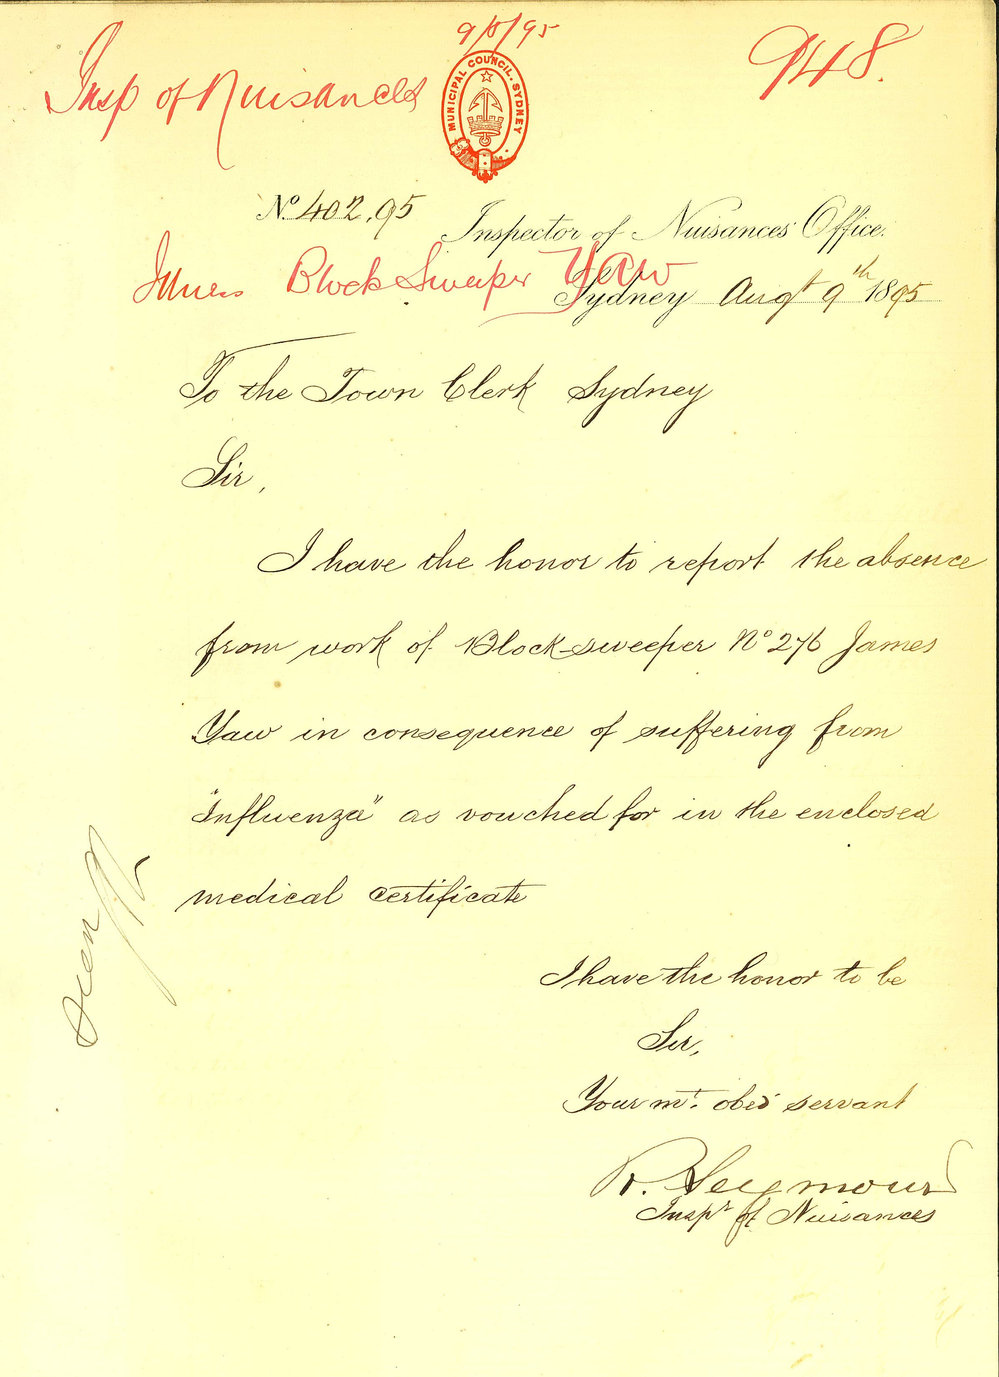 9/8/95
Insp of Nuisances
MUNICIPAL COUNCIL. SYDNEY
948.
No. 402.95
Inspector of Nuisances' Office.
Illness Block Sweeper Yaw
Sydney Augt 9th 1895
To the Town Clerk Sydney
Sir,
I have the honor to report the absence
from work of Block-sweeper No 276 James
Yaw in consequence of suffering from
"Influenza" as vouched for in the enclosed
medical certificate
I have the honor to be
Sir,
Your mt. obed servant
R. Seymour
Inspr of Nuisances
Seen